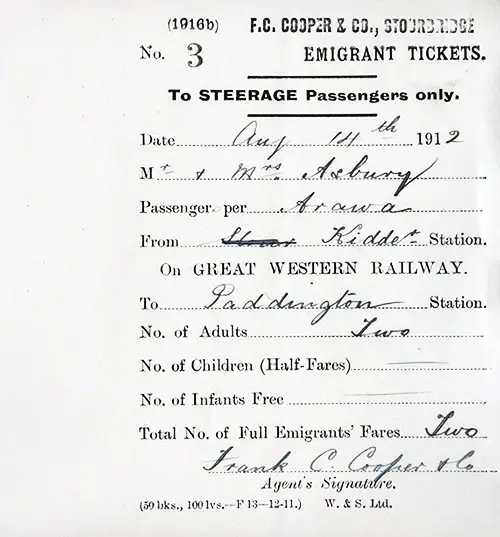 (1916b) F.C. COOPER & CO., STOURBRIDGE
No. 3 EMIGRANT TICKETS.
To STEERAGE Passengers only.
Date Aug 14th 1912
Mr & Mrs Asbury
Passenger per Arawa
From Stour Kidder Station.
On GREAT WESTERN RAILWAY.
To Paddington Station.
No. of Adults Two
No. of Children (Half-Fares)
No. of Infants Free
Total No. of Full Emigrants' Fares Two
Frank C. Cooper & Co
Agent's Signature.
(50 bks., 100 lvs.—F 13—12-11.) W. & S. Ltd.